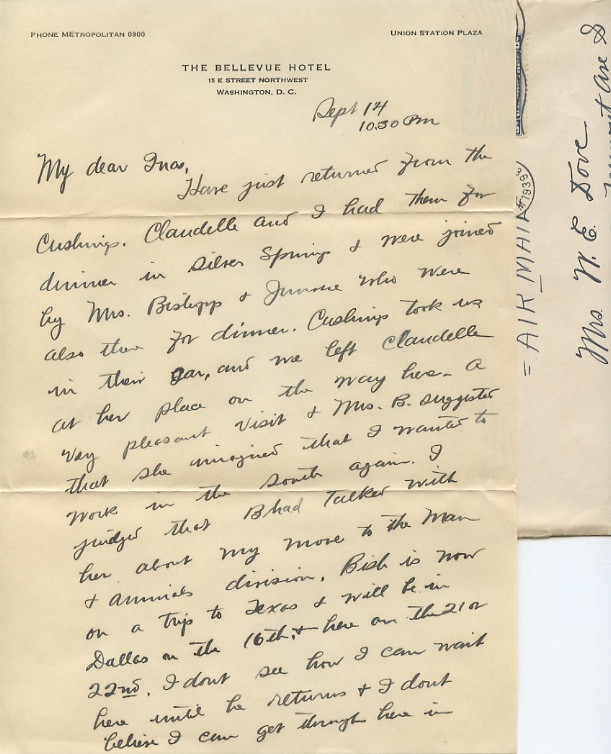 PHONE METROPOLITAN 0900
UNION STATION PLAZA
THE BELLEVUE HOTEL
15 E STREET NORTHWEST
WASHINGTON, D. C.
Sept 14
10:30 Pm
My dear Inas,
Have just returned from the
Cushings. Claudelle and I had them for
dinner in Silver Springs & were joined
by Mrs. Bishopp & Junnie who were
also there for dinner. Cushings took us
in their car, and we left Claudelle
at her place on the way here. A
very pleasant visit & Mrs. B. suggested
that she imagined that I wanted to
work in the south again. I
judged that B had talked with
her about my move to the Man
& animals division. Bish is now
on a trip to Texas & will be in
Dallas on the 16th, & here on the 21 or
22nd. I dont see how I can wait
here until he returns & I dont
believe I can get through here in
1939
= AIR MAIL
Mrs. W. E. Dove